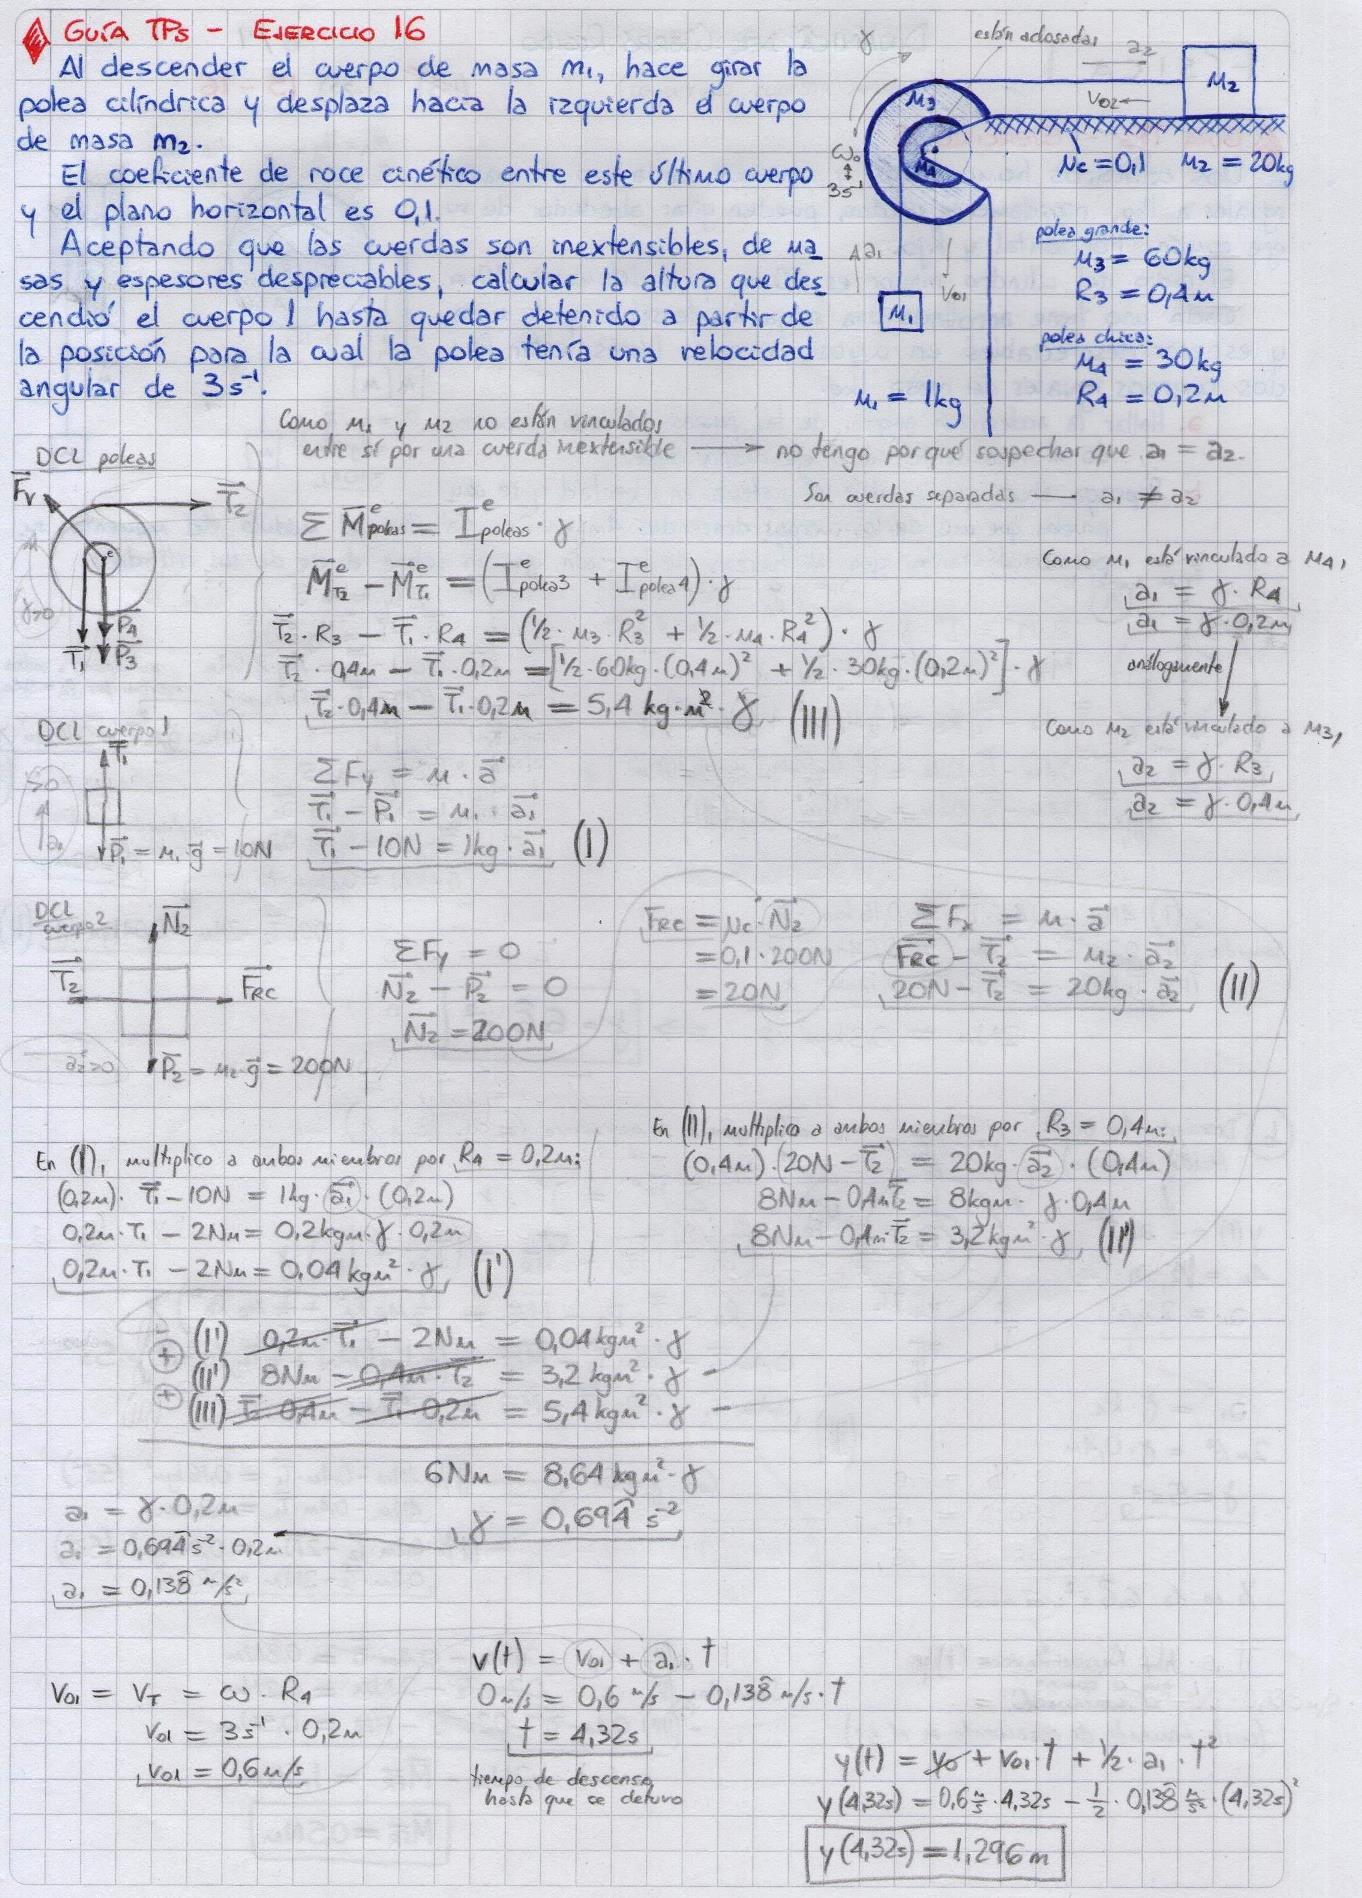 GUÍA TPs - EJERCICIO 16
Al descender el cuerpo de masa m₁, hace girar la
polea cilíndrica y desplaza hacia la izquierda el cuerpo
de masa m₂.
El coeficiente de roce cinético entre este último cuerpo
y el plano horizontal es 0,1.
Aceptando que las cuerdas son inextensibles, de ma
sas y espesores despreciables, calcular la altura que des
cendió el cuerpo 1 hasta quedar detenido a partir de
la posición para la cual la polea tenía una velocidad
angular de 3s⁻¹.
están adosadas
γ
a₂
M₂
M₃
V₀₂
ω₀
3s⁻¹
M₄
μc = 0,1 M₂ = 20kg
a₁
V₀₁
M₁
polea grande:
M₃ = 60kg
R₃ = 0,4m
polea chica:
M₄ = 30kg
R₄ = 0,2m
M₁ = 1kg
Como M₁ y M₂ no están vinculados
entre sí por una cuerda inextensible → no tengo por qué sospechar que a₁ = a₂.
Son cuerdas separadas — a₁ ≠ a₂
DCL poleas
Fv
T₂
e
γ>0
P₄
T₁ P₃
Σ M^e poleas = I^e poleas · γ
M^e T₂ - M^e T₁ = (I^e polea3 + I^e polea4) · γ
T₂ · R₃ - T₁ · R₄ = (½ · M₃ · R₃² + ½ · M₄ · R₄²) · γ
T₂ · 0,4m - T₁ · 0,2m = [½ · 60kg · (0,4m)² + ½ · 30kg · (0,2m)²] · γ
T₂ · 0,4m - T₁ · 0,2m = 5,4 kg·m² · γ (III)
Como M₁ está vinculado a M₄,
a₁ = γ · R₄
a₁ = γ · 0,2m
análogamente
Como M₂ está vinculado a M₃,
a₂ = γ · R₃
a₂ = γ · 0,4m
DCL cuerpo 1
T₁
a₁
P₁ = M₁ · g = 10N
ΣFy = M · a
T₁ - P₁ = M₁ · a₁
T₁ - 10N = 1kg · a₁ (I)
DCL
cuerpo 2
N₂
T₂
FRC
a₂>0
P₂ = M₂ · g = 200N
ΣFy = 0
N₂ - P₂ = 0
N₂ = 200N
FRC = μc · N₂
= 0,1 · 200N
= 20N
ΣFx = M · a
FRC - T₂ = M₂ · a₂
20N - T₂ = 20kg · a₂ (II)
En (I), multiplico a ambos miembros por R₄ = 0,2m:
(0,2m) · T₁ - 10N = 1kg · a₁ · (0,2m)
0,2m · T₁ - 2Nm = 0,2kgm · γ · 0,2m
0,2m · T₁ - 2Nm = 0,04 kgm² · γ (I')
En (II), multiplico a ambos miembros por R₃ = 0,4m:
(0,4m) · (20N - T₂) = 20kg · a₂ · (0,4m)
8Nm - 0,4m T₂ = 8kgm · γ · 0,4m
8Nm - 0,4m · T₂ = 3,2kgm² · γ (II')
+ (I') 0,2m · T₁ - 2Nm = 0,04kgm² · γ
(II') 8Nm - 0,4m · T₂ = 3,2 kgm² · γ
+ (III) T₂ · 0,4m - T₁ · 0,2m = 5,4kgm² · γ
6Nm = 8,64kgm² · γ
γ = 0,694̂ s⁻²
a₁ = γ · 0,2m
a₁ = 0,694̂ s⁻² · 0,2m
a₁ = 0,138̂ m/s²
V₀₁ = V_T = ω · R₄
V₀₁ = 3s⁻¹ · 0,2m
V₀₁ = 0,6m/s
v(t) = V₀₁ + a₁ · t
0m/s = 0,6 m/s - 0,138̂ m/s · t
t = 4,32s
tiempo de descenso
hasta que se detuvo
y(t) = y₀ + V₀₁ · t + ½ · a₁ · t²
y(4,32s) = 0,6 m/s · 4,32s - 1/2 · 0,138̂ m/s² · (4,32s)²
y(4,32s) = 1,296m